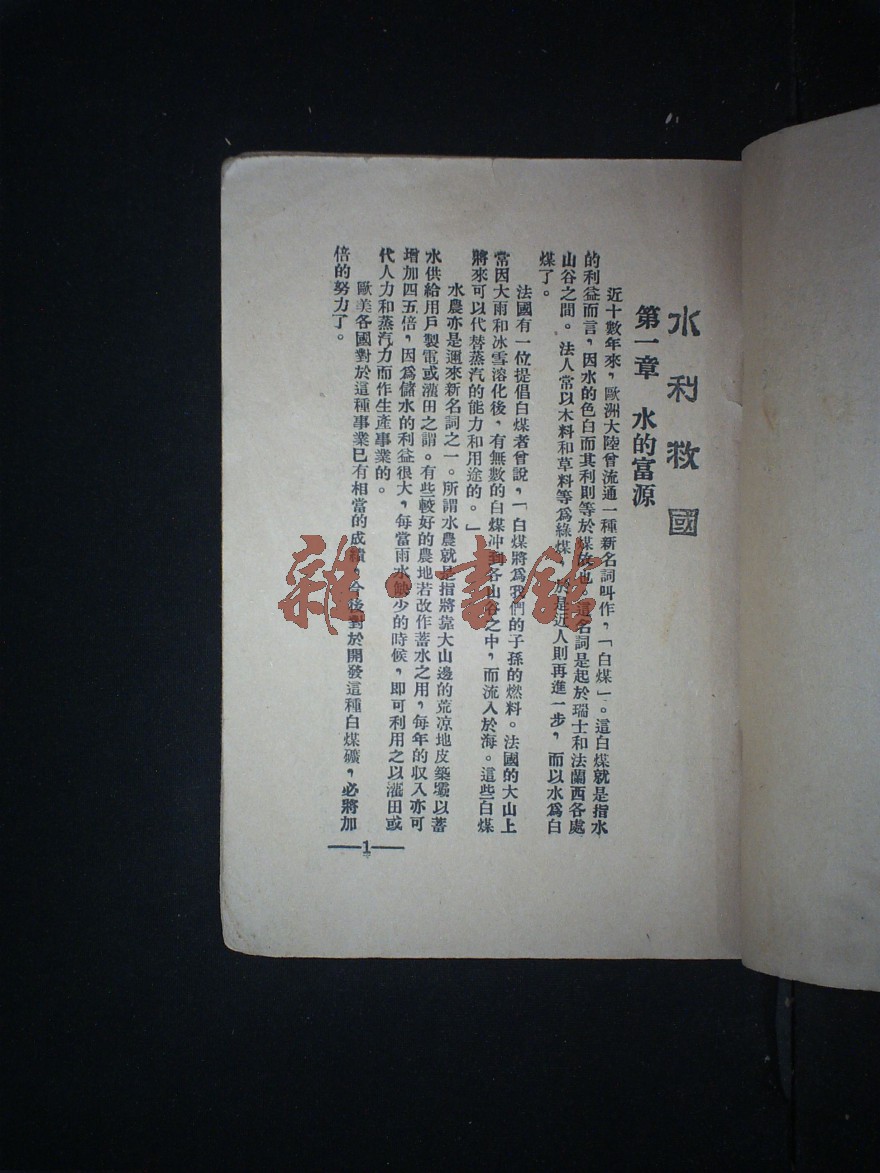 水利救國
第一章 水的富源
近十數年來，歐洲大陸曾流通一種新名詞叫作，「白煤」。這白煤就是指水
的利益而言，因水的色白而其利則等於煤故也。這名詞是起於瑞士和法蘭西各處
山谷之間。法人常以木料和草料等爲綠煤 於是近人則再進一步，而以水爲白
煤了。
法國有一位提倡白煤者曾說，「白煤將爲我們的子孫的燃料。法國的大山上
常因大雨和冰雪溶化後，有無數的白煤冲到各山谷之中，而流入於海。這些白煤
將來可以代替蒸汽的能力和用途的。」
水農亦是邇來新名詞之一。所謂水農就是指將靠大山邊的荒凉地皮築壩以蓄
水供給用戶製電或灌田之謂。有些較好的農地若改作蓄水之用，每年的収入亦可
增加四五倍，因爲儲水的利益很大，每當雨水缺少的時候，即可利用之以灌田或
代人力和蒸汽力而作生產事業的。
歐美各國對於這種事業已有相當的成績，今後對於開發這種白煤礦，必將加
倍的努力了。
—1—
雜·書館